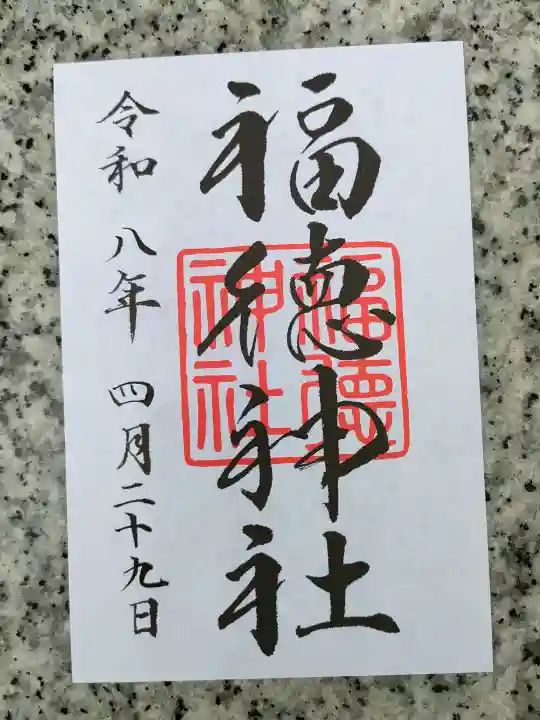 福徳神社
福德
神社
令和 八年 四月二十九日